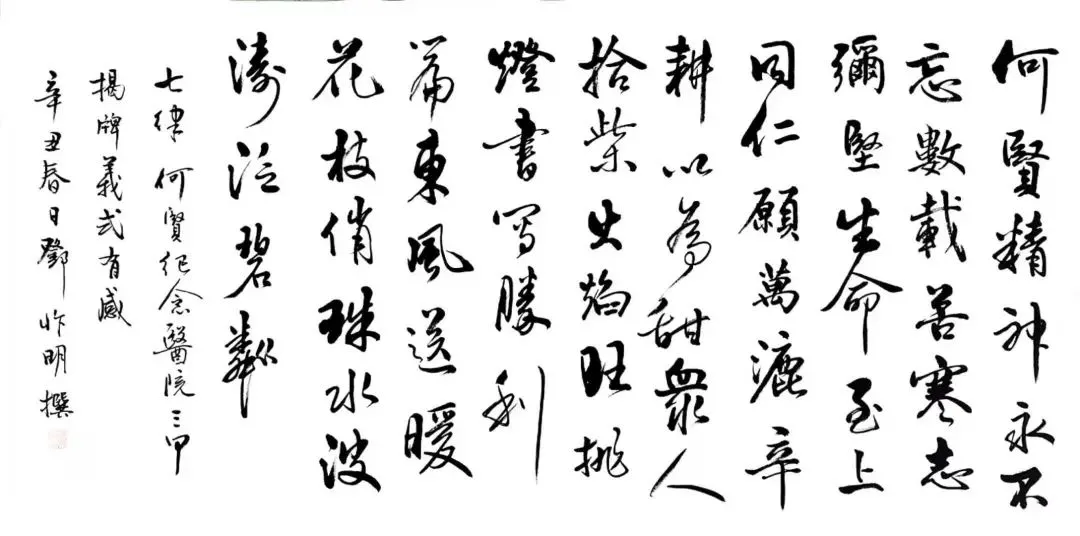 何賢精神永不
忘數載苦寒志
彌堅生命至上
同仁願萬漉辛
耕以為甜眾人
拾柴火焰旺挑
燈書寫勝利
篇東風送暖
花枝俏珠水波
濤泛碧粼
七律何賢紀念醫院三甲
揭牌義式有感
辛丑春日鄧明撰